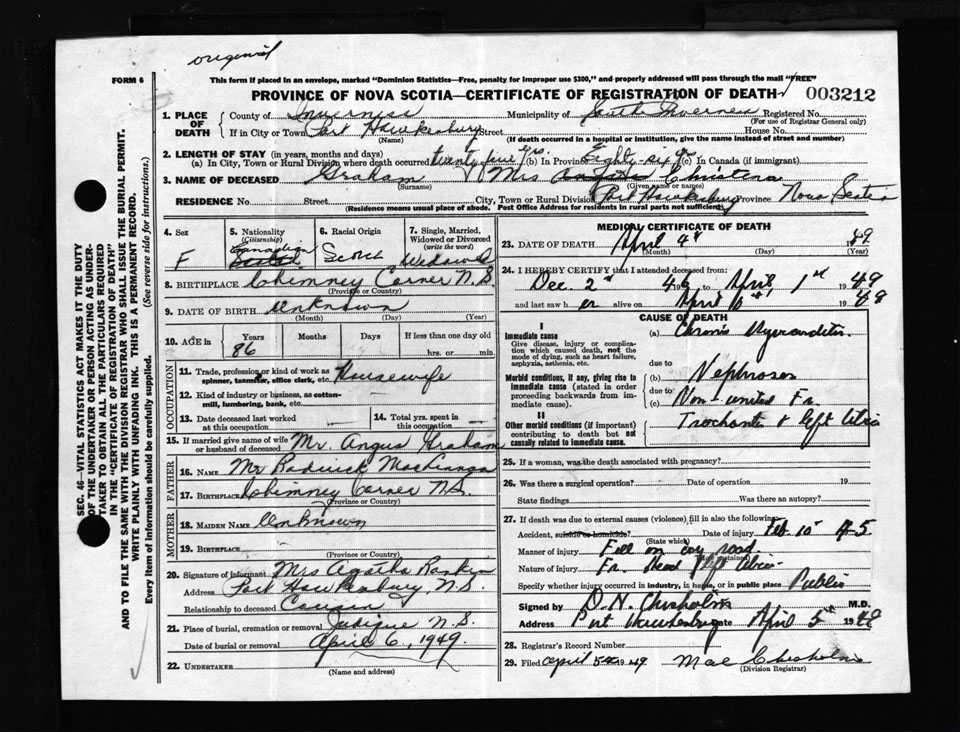 original
FORM 6
This form if placed in an envelope, marked "Dominion Statistics—Free, penalty for improper use $300," and properly addressed will pass through the mail "FREE"
PROVINCE OF NOVA SCOTIA—CERTIFICATE OF REGISTRATION OF DEATH 003212
1. PLACE OF DEATH County of Inverness Municipality of South Inverness Registered No.
(For use of Registrar General only)
If in City or Town Port Hawkesbury Street House No.
(If death occurred in a hospital or institution, give the name instead of street and number)
2. LENGTH OF STAY (in years, months and days)
(a) In City, Town or Rural Division where death occurred twenty five yrs. (b) In Province Eighty-six (c) In Canada (if immigrant)
3. NAME OF DECEASED Graham Mrs Christena
(Surname) (Given name or names)
RESIDENCE No. Street City, Town or Rural Division Port Hawkesbury Province Nova Scotia
(Residence means usual place of abode. Post Office Address for residents in rural parts not sufficient)
4. Sex 5. Nationality (Citizenship) 6. Racial Origin 7. Single, Married, Widowed or Divorced (write the word)
F Canadian Scotch Widowed
8. BIRTHPLACE Chimney Corner N.S.
(Province or Country)
9. DATE OF BIRTH Unknown
(Month) (Day) (Year)
10. AGE in Years Months Days If less than one day old
86 hrs. or min.
OCCUPATION
11. Trade, profession or kind of work as spinner, teamster, office clerk, etc. Housewife
12. Kind of industry or business, as cotton-mill, lumbering, bank, etc.
13. Date deceased last worked at this occupation 14. Total yrs. spent in this occupation
15. If married give name of wife or husband of deceased Mr. Angus Graham
FATHER
16. Name Mr Roderick
17. Birthplace Chimney Corner N.S.
(Province or Country)
MOTHER
18. MAIDEN NAME Unknown
19. BIRTHPLACE -
(Province or Country)
20. Signature of informant Mrs Agatha Rankin
Address Port Hawkesbury, N.S.
Relationship to deceased Cousin
21. Place of burial, cremation or removal Judique N.S.
Date of burial or removal April 6, 1949.
22. UNDERTAKER
(Name and address)
MEDICAL CERTIFICATE OF DEATH
23. DATE OF DEATH April 4th 49
(Month) (Day) (Year)
24. I HEREBY CERTIFY that I attended deceased from:
Dec. 2nd 48 to April 1st 1949
and last saw her alive on April 1st 1949
CAUSE OF DEATH
I
Immediate cause
Give disease, injury or complication which caused death, not the mode of dying, such as heart failure, asphyxia, asthenia, etc.
(a) Chronic Myocarditis
due to
Morbid conditions, if any, giving rise to immediate cause (stated in order proceeding backwards from immediate cause).
(b) Nephroses
due to
(c) Non-united Fr.
II
Other morbid conditions (if important) contributing to death but not causally related to immediate cause.
Trochanter & left tibia
25. If a woman, was the death associated with pregnancy?
26. Was there a surgical operation? Date of operation 19
State findings Was there an autopsy?
27. If death was due to external causes (violence) fill in also the following:
Accident, suicide or homicide? Date of injury Feb. 10 45
(State which)
Manner of injury Fell on icy road
Nature of injury Fr. head left tibia
Specify whether injury occurred in industry, in home, or in public place Public
Signed by D. N. Chisholm M.D.
Address Port Hawkesbury Date April 5th 1949
28. Registrar's Record No.
29. Filed April 5th 1949 Mae Chisholm
(Division Registrar)
SEC. 46—VITAL STATISTICS ACT MAKES IT THE DUTY
OF THE UNDERTAKER OR PERSON ACTING AS UNDER-
TAKER TO OBTAIN ALL THE PARTICULARS REQUIRED
IN THE "CERTIFICATE OF REGISTRATION OF DEATH"
AND TO FILE THE SAME WITH THE DIVISION REGISTRAR WHO SHALL ISSUE THE BURIAL PERMIT.
WRITE PLAINLY WITH UNFADING INK. THIS IS A PERMANENT RECORD.
Every item of information should be carefully supplied. (See reverse side for instructions.)